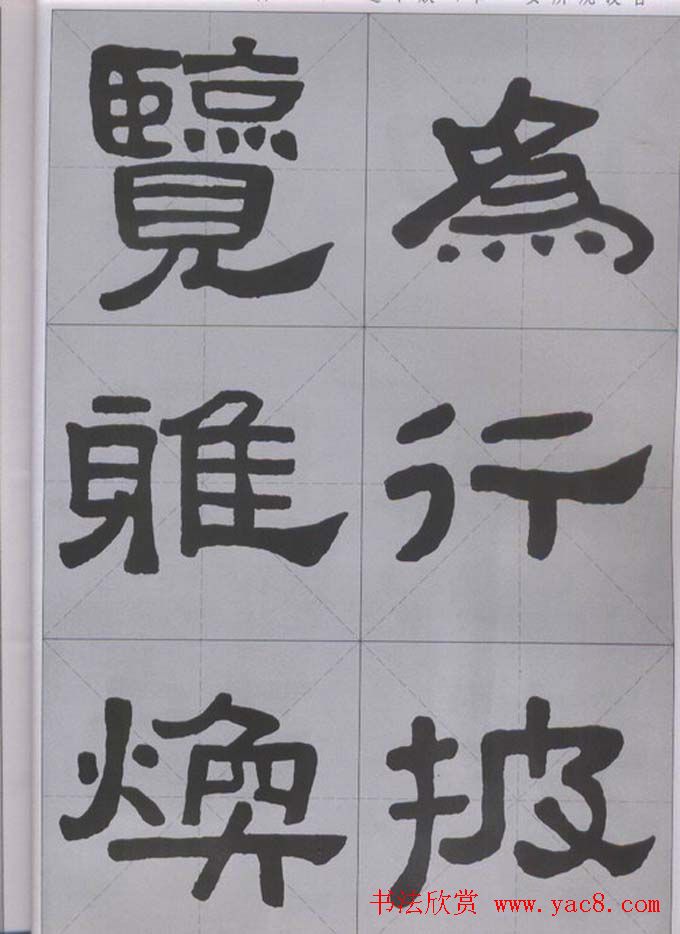 為行披
覽雅煥
书法欣赏 www.yac8.com